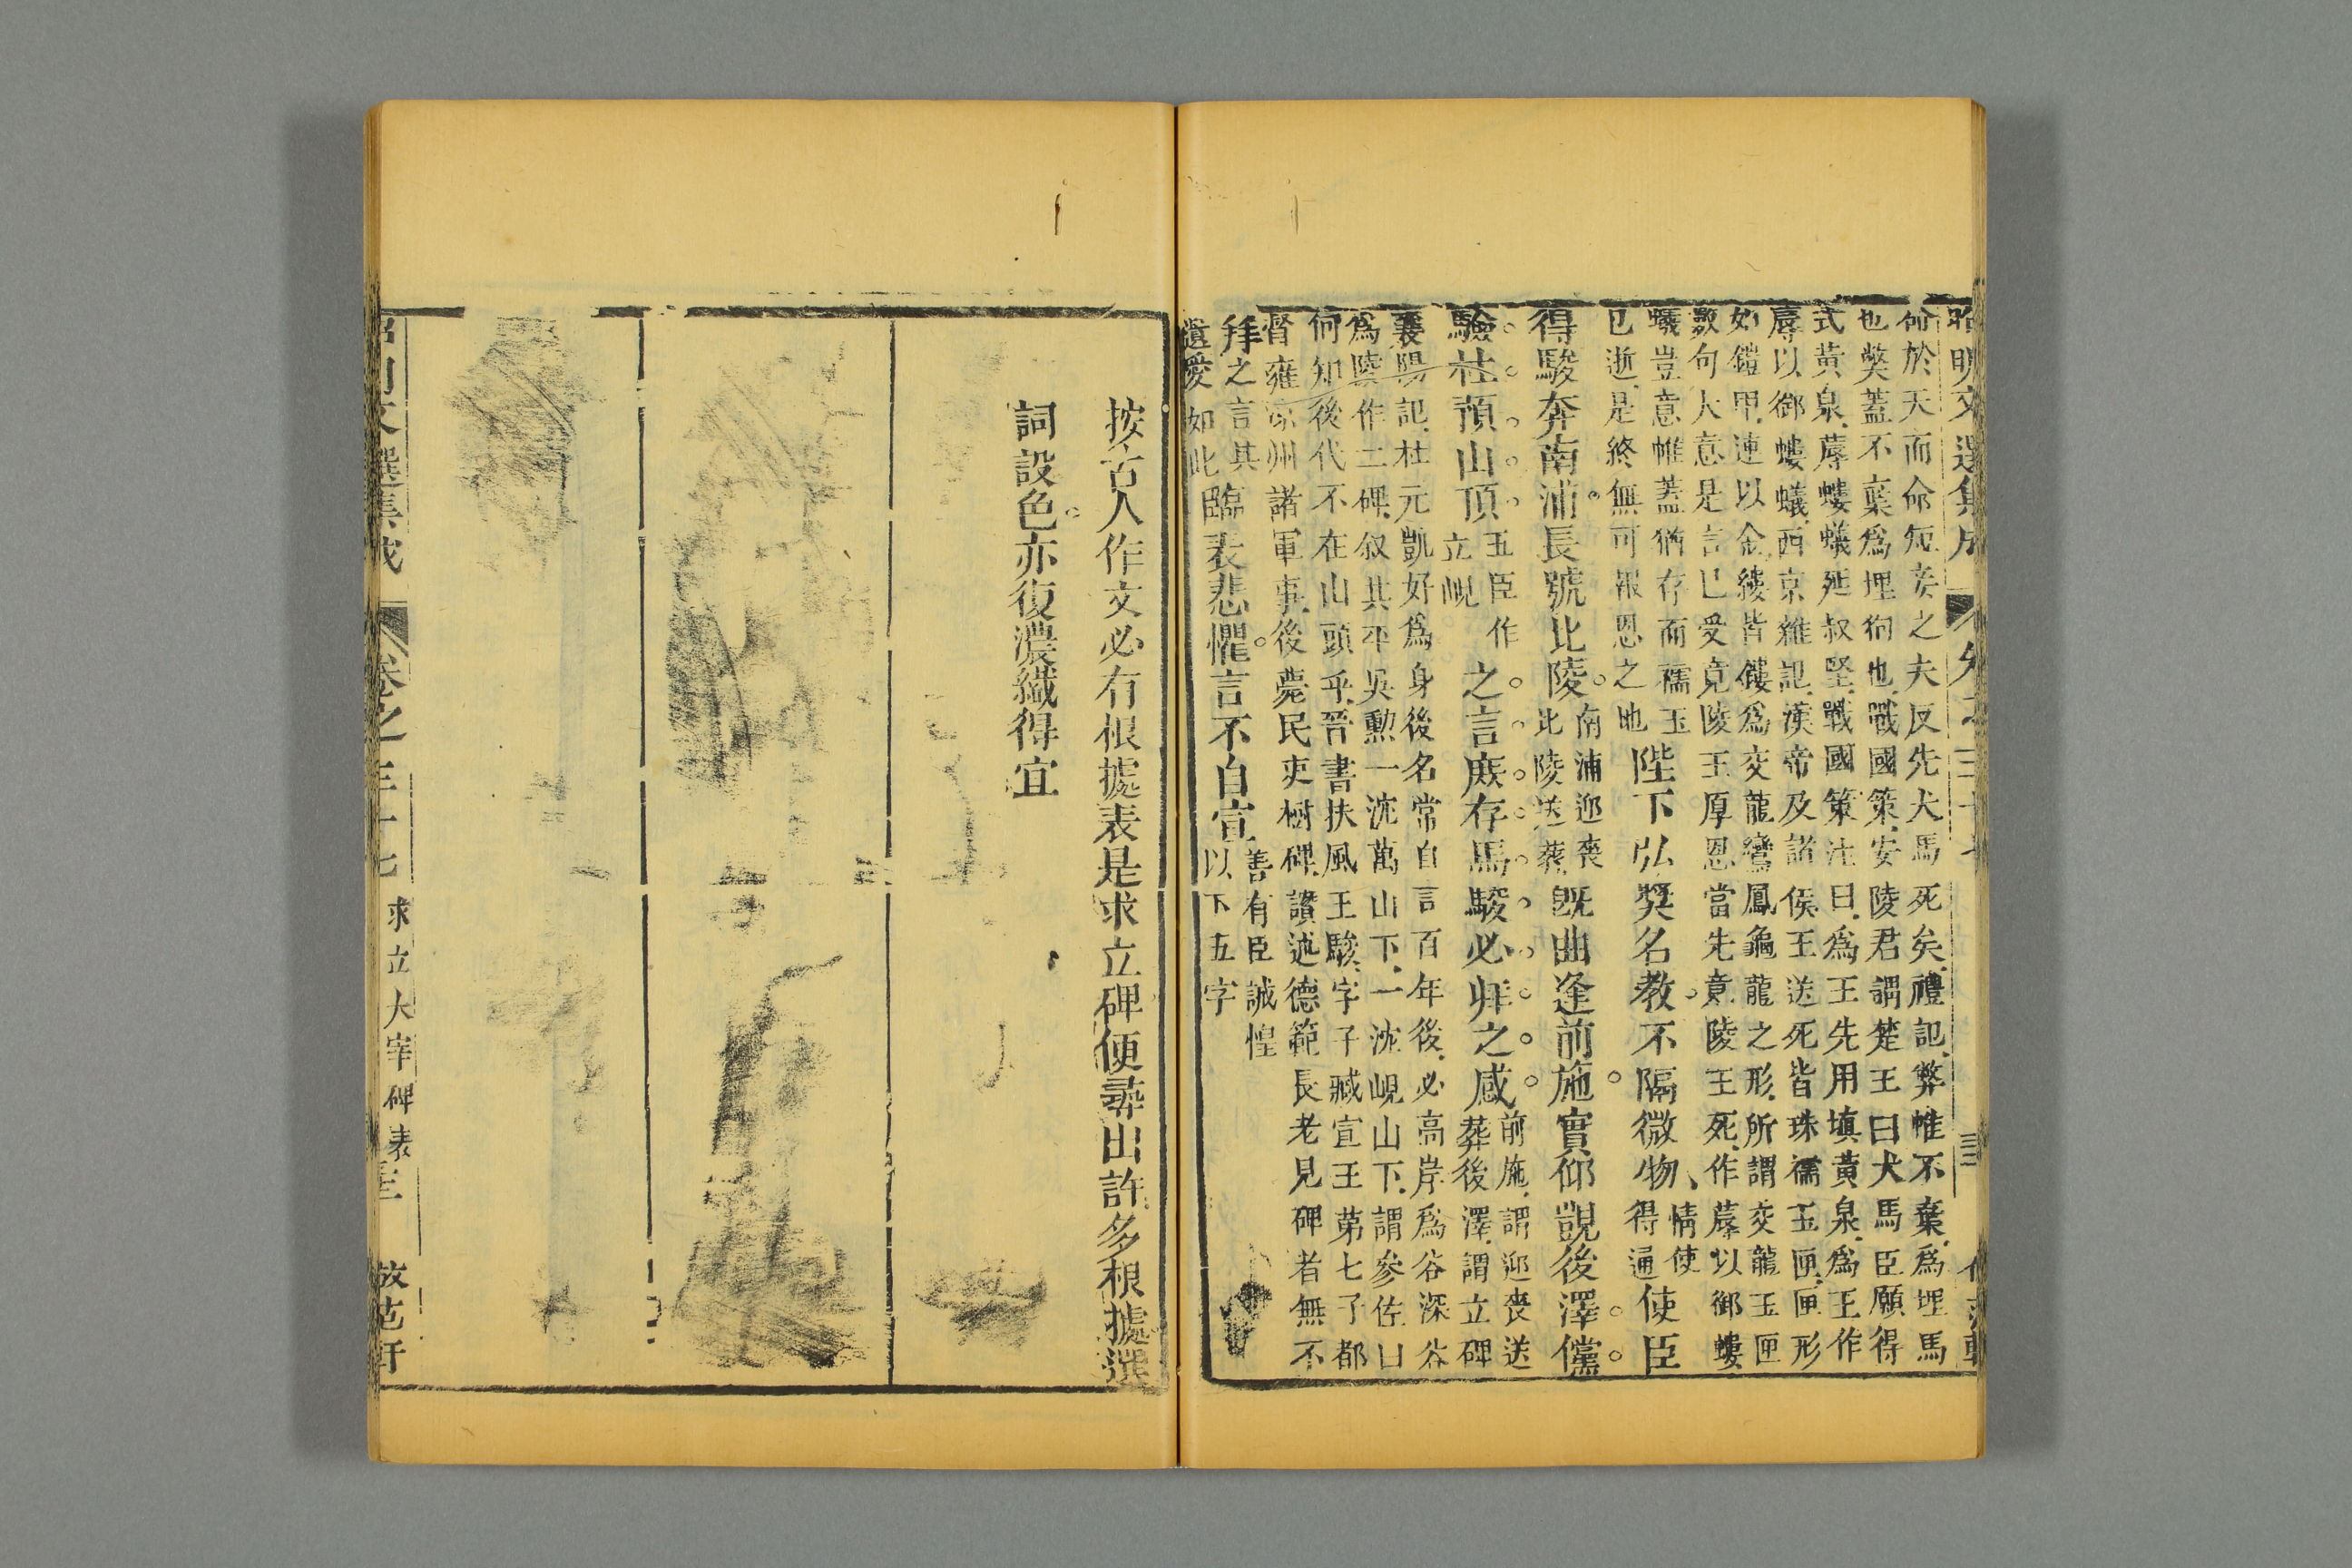 昭明文選集成 卷之三十七
命於天而命短妾之夫反先犬馬死矣禮記弊帷不棄爲埋馬
也獘蓋不棄爲埋狗也戰國策安陵君謂楚王曰犬馬臣願得
式黃泉蓐螻蟻延叔堅戰國策注曰爲王先用填黃泉爲王作
蓐以御螻蟻西京雜記漢帝及諸侯王送死皆珠襦玉匣匣形
如鎧甲連以金縷皆鏤爲交龍鸞鳳龜龍之形所謂交龍玉匣
數句大意是言已受竟陵王厚恩當先竟陵王死作蓐以御螻
蟻豈意帷蓋猶存而襦玉
已逝是終無可報恩之地陛下弘奨名教不隔微物情使
得通使臣
得駿奔南浦長號比陵南浦迎喪
比陵送葬旣曲逢前施實仰覬後澤儻
驗杜預山頂五臣作
立峴之言庶存馬駿必拜之感前施謂迎喪送
葬後澤謂立碑
襄陽記杜元凱好爲身後名常自言百年後必高岸爲谷深谷
爲陵作二碑叙其平吳勲一沈萬山下一沈峴山下謂參佐曰
何知後代不在山頭乎晉書扶風王駿字子臧宣王第七子都
督雍凉州諸軍事後薨民吏樹碑讚述德範長老見碑者無不
拜之言其
遺愛如此臨表悲懼言不自宣善有臣誠惶
以下五字
按古人作文必有根據表是求立碑便尋出許多根據選
詞設色亦復濃纎得宜
昭明文選集成 卷之三十七 求立大宰碑表 三 放范軒